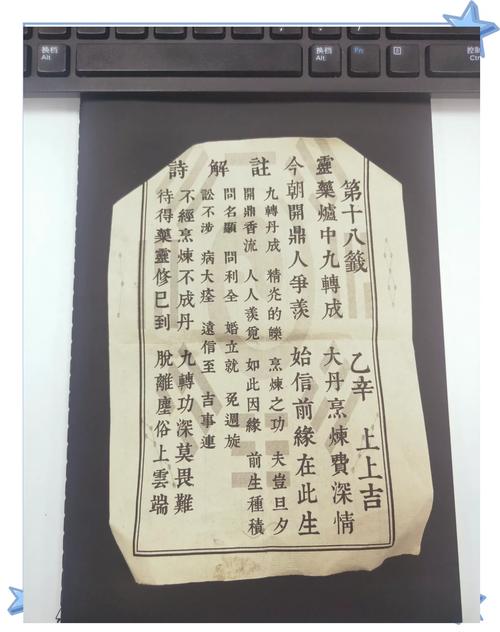 换档
Alt
换档
Alt
Fn
控制
Ctr
第十八籤 乙辛 上上吉
靈藥爐中九轉成 大丹烹煉費深情
今朝開鼎人爭羨 始信前緣在此生
註解詩
九轉丹成 精光的皪 烹煉之功 夫豈旦夕
開鼎香流 人人羨覓 如此因緣 前生種積
問名顯 問利全 婚立就 免週旋
訟不涉 病大痊 遠信至 吉事連
不經烹煉不成丹 九轉功深莫畏難
待得藥靈修已到 脫離塵俗上雲端